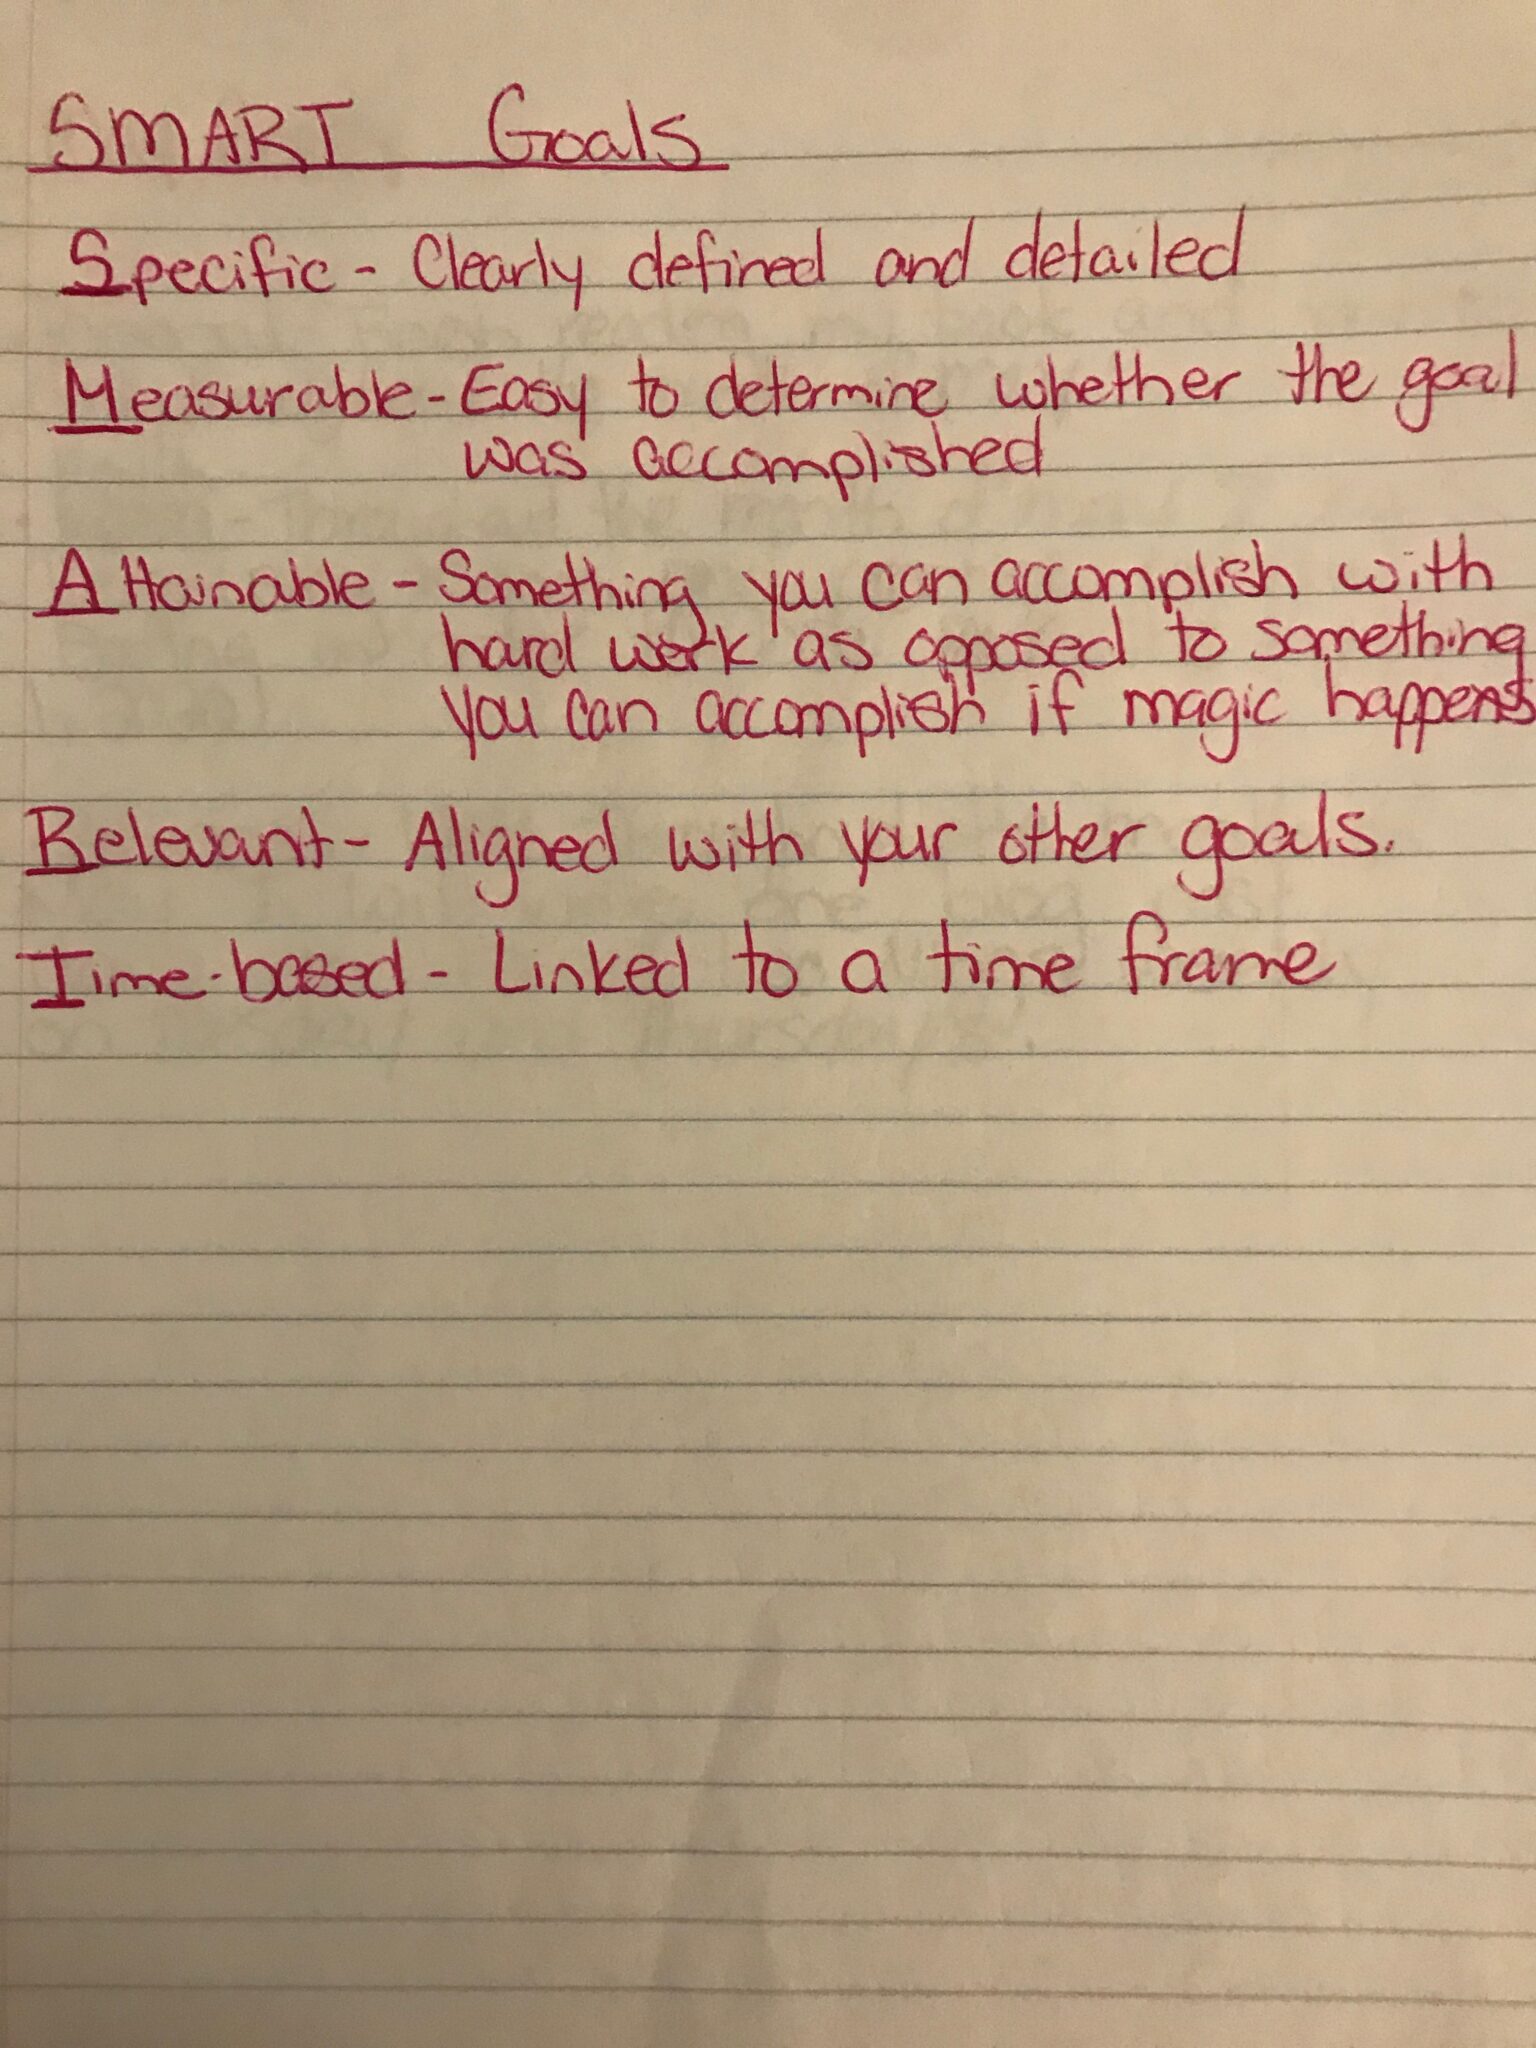 SMART Goals
Specific - Clearly defined and detailed
Measurable - Easy to determine whether the goal
was accomplished
Attainable - Something you can accomplish with
hard work as opposed to something
you can accomplish if magic happens
Relevant - Aligned with your other goals.
Time-based - Linked to a time frame